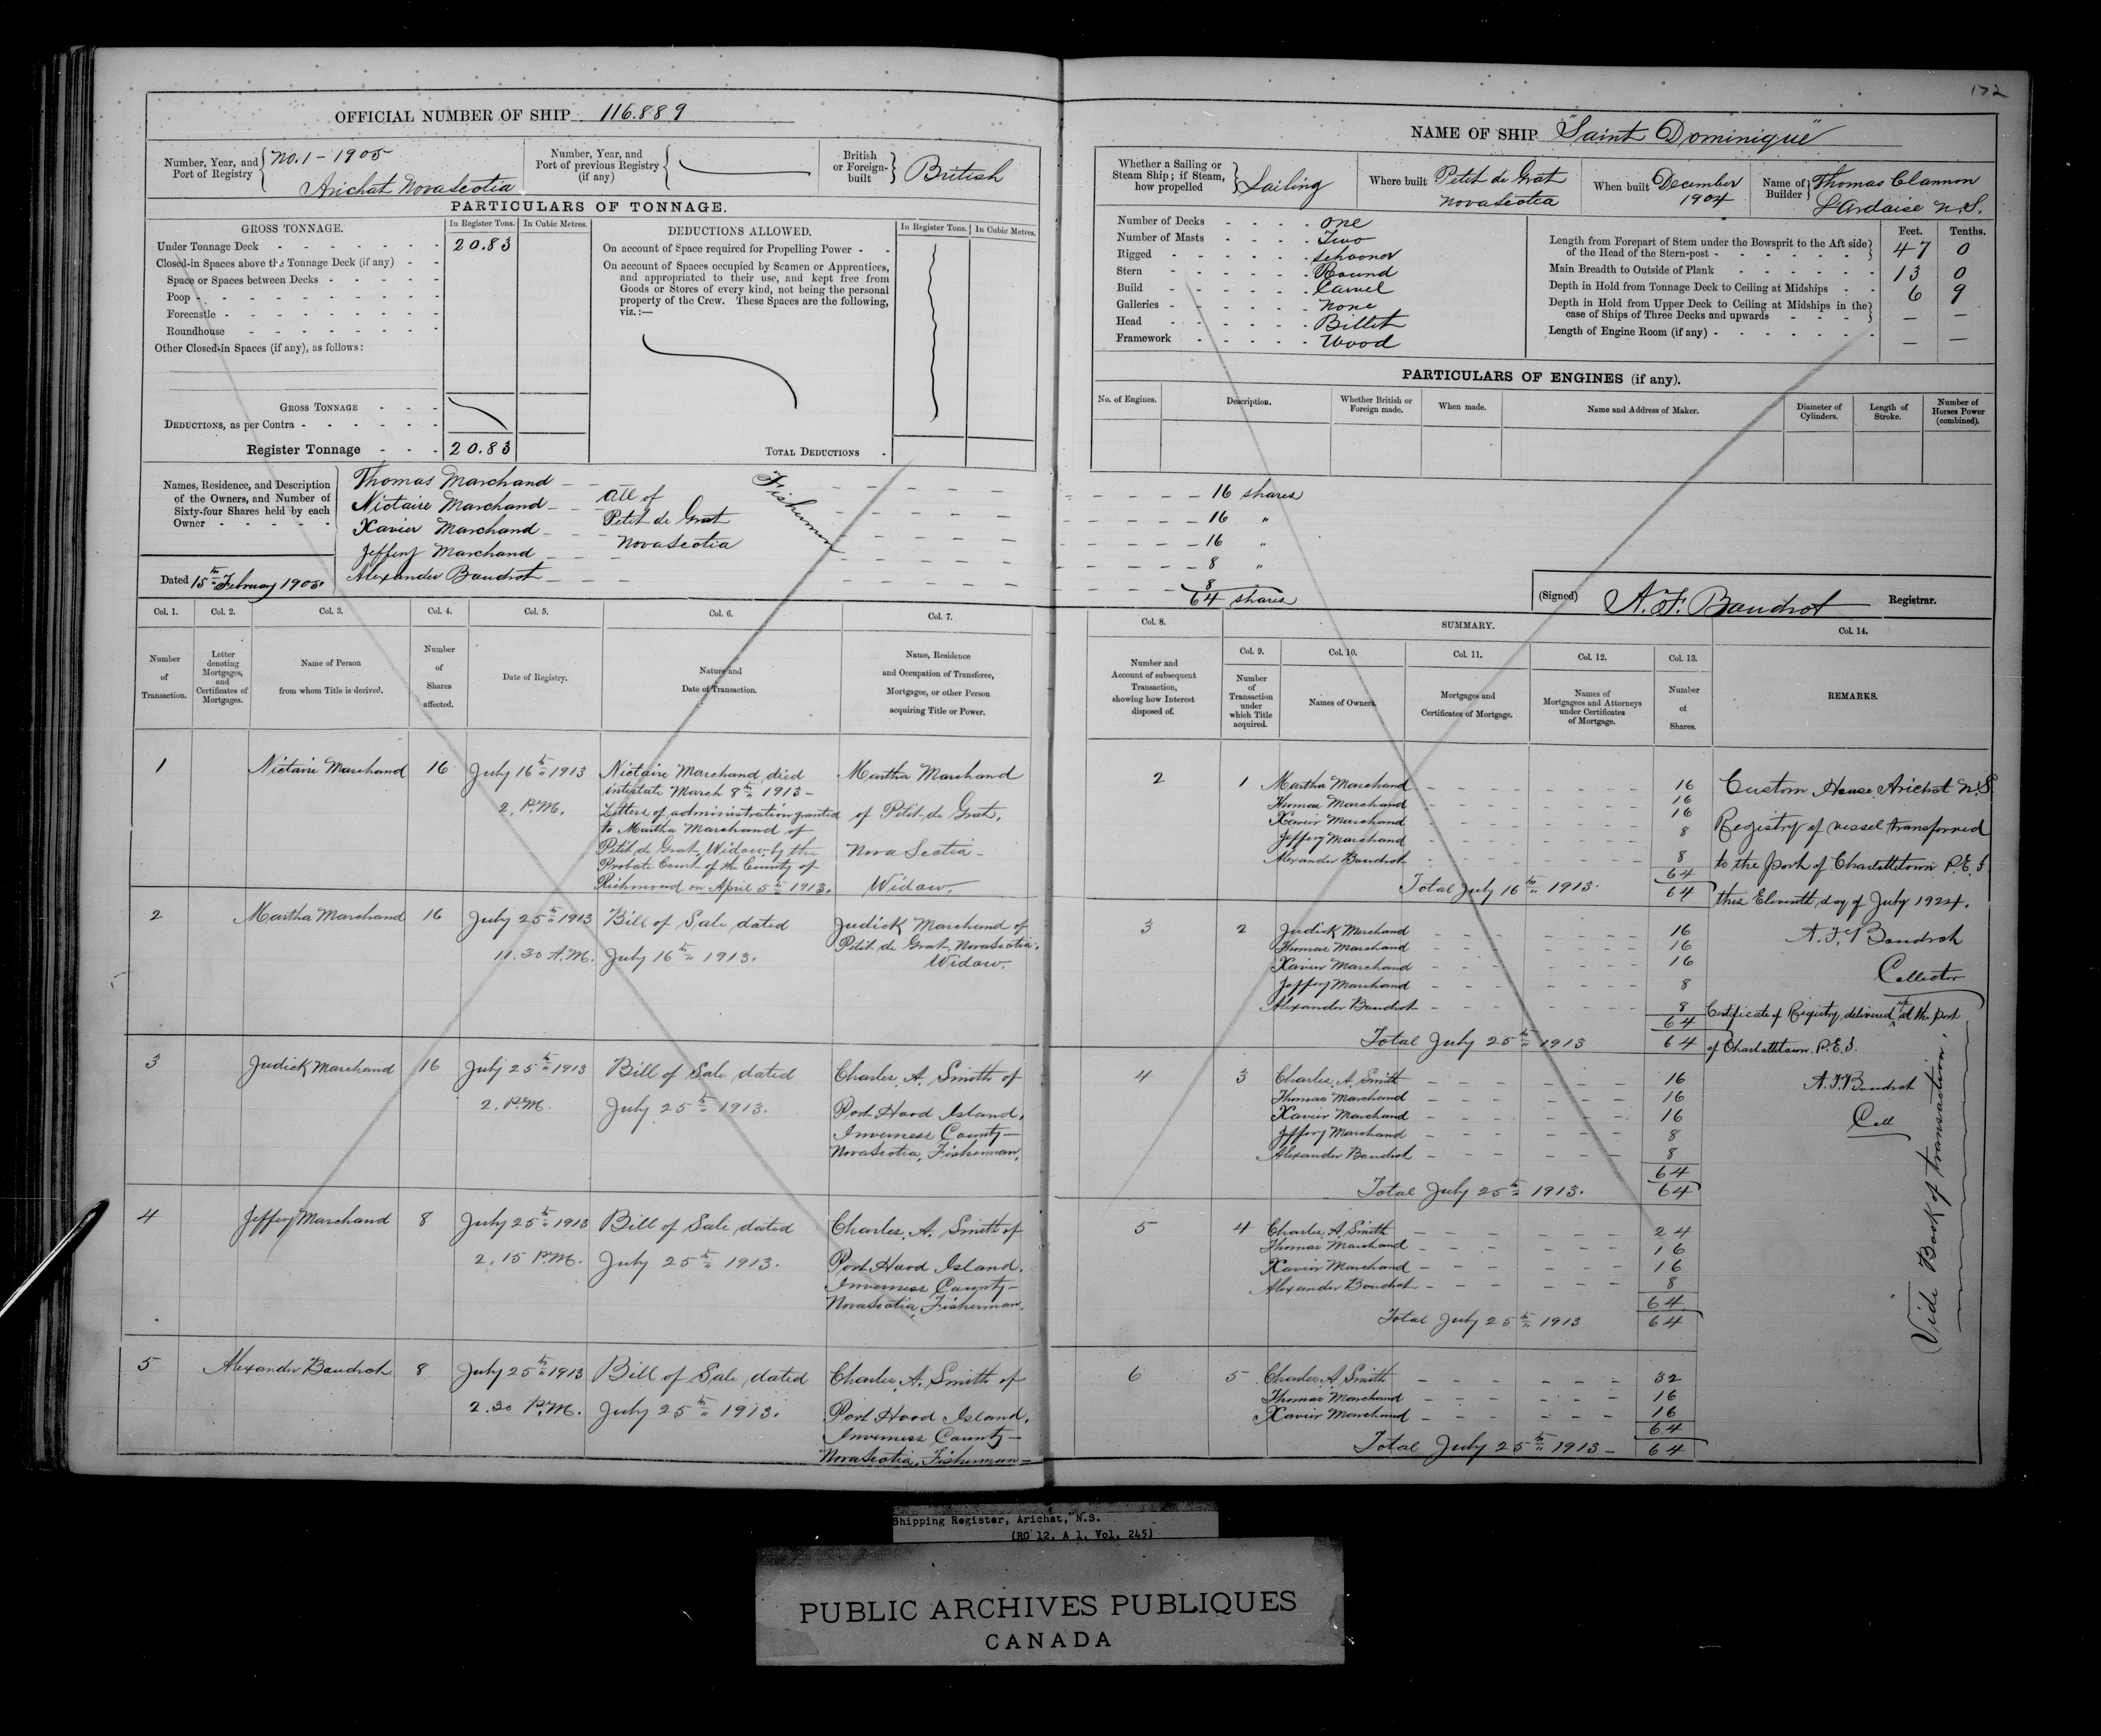 172
OFFICIAL NUMBER OF SHIP 116.889
Number, Year, and Port of Registry No. 1 - 1905
Arichat Nova Scotia
Number, Year, and Port of previous Registry (if any)
British or Foreign-built British
PARTICULARS OF TONNAGE.
GROSS TONNAGE.
In Register Tons. In Cubic Metres.
Under Tonnage Deck 20.83
Closed-in Spaces above the Tonnage Deck (if any)
Space or Spaces between Decks
Poop
Forecastle
Roundhouse
Other Closed-in Spaces (if any), as follows:
GROSS TONNAGE
DEDUCTIONS, as per Contra
Register Tonnage 20.83
DEDUCTIONS ALLOWED.
In Register Tons. In Cubic Metres.
On account of Space required for Propelling Power
On account of Spaces occupied by Seamen or Apprentices,
and appropriated to their use, and kept free from
Goods or Stores of every kind, not being the personal
property of the Crew. These Spaces are the following,
viz.:—
TOTAL DEDUCTIONS
NAME OF SHIP "Saint Dominique"
Whether a Sailing or Steam Ship; if Steam, how propelled Sailing
Where built Petit de Grat Nova Scotia
When built December 1904
Name of Builder Thomas Clannon L'Ardoise N.S.
Number of Decks One
Number of Masts Two
Rigged Schooner
Stern Round
Build Carvel
Galleries None
Head Billet
Framework Wood
Feet. Tenths.
Length from Forepart of Stem under the Bowsprit to the Aft side of the Head of the Stern-post 47 0
Main Breadth to Outside of Plank 13 0
Depth in Hold from Tonnage Deck to Ceiling at Midships 6 9
Depth in Hold from Upper Deck to Ceiling at Midships in the case of Ships of Three Decks and upwards — —
Length of Engine Room (if any) — —
PARTICULARS OF ENGINES (if any).
No. of Engines.
Description.
Whether British or Foreign made.
When made.
Name and Address of Maker.
Diameter of Cylinders.
Length of Stroke.
Number of Horses Power (combined).
Names, Residence, and Description
of the Owners, and Number of
Sixty-four Shares held by each
Owner
Thomas Marchand 16 shares
Nictaire Marchand 16 "
Xavier Marchand 16 "
Jeffery Marchand 8 "
Alexander Boudrot 8
64 shares
All of
Petit de Grat
Nova Scotia
Fishermen
Dated 15th February 1905.
(Signed) A. F. Boudrot Registrar.
Col. 1. Col. 2. Col. 3. Col. 4. Col. 5. Col. 6. Col. 7.
Number of Transaction.
Letter denoting Mortgages, and Certificates of Mortgages.
Name of Person from whom Title is derived.
Number of Shares affected.
Date of Registry.
Nature and Date of Transaction.
Name, Residence and Occupation of Transferee, Mortgagee, or other Person acquiring Title or Power.
Col. 8.
Number and Account of subsequent Transaction, showing how Interest disposed of.
SUMMARY.
Col. 9. Col. 10. Col. 11. Col. 12. Col. 13. Col. 14.
Number of Transaction under which Title acquired.
Names of Owners.
Mortgages and Certificates of Mortgage.
Names of Mortgagees and Attorneys under Certificates of Mortgage.
Number of Shares.
REMARKS.
1 Nictaire Marchand 16 July 16th 1913
2. P.M.
Nictaire Marchand died
intestate March 8th 1913 -
Letters of administration granted
to Martha Marchand of
Petit de Grat, Widow by the
Probate Court of the County of
Richmond on April 5th 1913.
Martha Marchand
of Petit de Grat,
Nova Scotia -
Widow.
2 1 Martha Marchand 16
Thomas Marchand 16
Xavier Marchand 16
Jeffery Marchand 8
Alexander Boudrot 8
64
Total July 16th 1913. 64
2 Martha Marchand 16 July 25th 1913
11.30 A.M.
Bill of Sale dated
July 16th 1913.
Judick Marchand of
Petit de Grat, Nova Scotia.
Widow.
3 2 Judick Marchand 16
Thomas Marchand 16
Xavier Marchand 16
Jeffery Marchand 8
Alexander Boudrot 8
64
Total July 25th 1913 64
3 Judick Marchand 16 July 25th 1913
2. P.M.
Bill of Sale dated
July 25th 1913.
Charles. A. Smith of
Port Hood Island,
Inverness County -
Nova Scotia, Fisherman.
4 3 Charles. A. Smith 16
Thomas Marchand 16
Xavier Marchand 16
Jeffery Marchand 8
Alexander Boudrot 8
64
Total July 25th 1913. 64
4 Jeffery Marchand 8 July 25th 1913
2.15 P.M.
Bill of Sale dated
July 25th 1913.
Charles. A. Smith of
Port Hood Island.
Inverness County -
Nova Scotia, Fisherman.
5 4 Charles. A. Smith 24
Thomas Marchand 16
Xavier Marchand 16
Alexander Boudrot 8
64
Total July 25th 1913 64
5 Alexander Boudrot 8 July 25th 1913
2.30 P.M.
Bill of Sale dated
July 25th 1913.
Charles. A. Smith of
Port Hood Island,
Inverness County -
Nova Scotia. Fisherman -
6 5 Charles. A. Smith 32
Thomas Marchand 16
Xavier Marchand 16
64
Total July 25th 1913 - 64
Custom House, Arichat N.S.
Registry of vessel transferred
to the port of Charlottetown P.E.I.
this Eleventh day of July 1924.
A. F. Boudrot
Collector
Certificate of Registry delivered up at the port
of Charlottetown. P.E.I.
A. F. Boudrot
Coll
Vide Book of transaction.
Shipping Register, Arichat, N.S.
(RG 12, A 1, Vol. 245)
PUBLIC ARCHIVES PUBLIQUES
CANADA